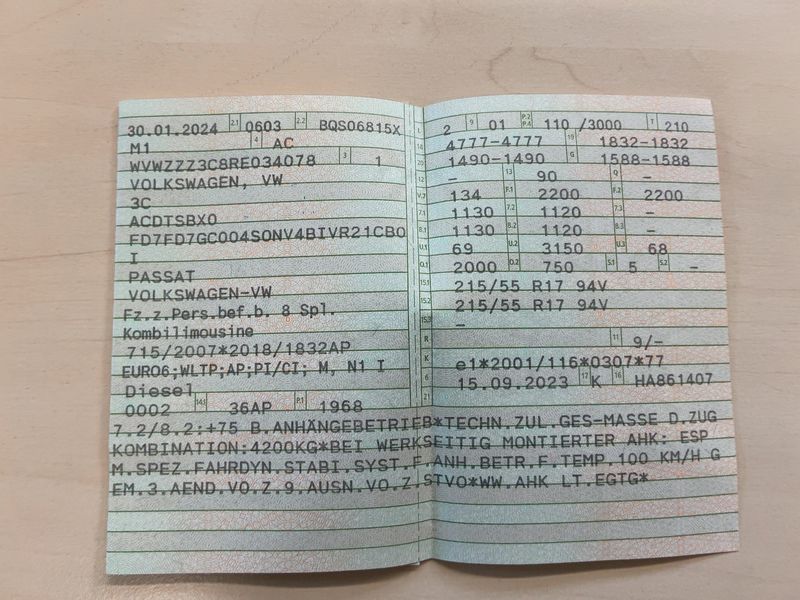 30.01.2024 2.1 0603 2.2 BQS06815X
M1 4 AC
WVWZZZ3C8RE034078 3 1
VOLKSWAGEN, VW
3C
ACDTSBX0
FD7FD7GC004SONV4BIVR21CB0
I
PASSAT
VOLKSWAGEN-VW
Fz.z.Pers.bef.b. 8 Spl.
Kombilimousine
715/2007*2018/1832AP
EURO6;WLTP;AP;PI/CI; M, N1 I
Diesel
0002 14.1 36AP P.1 1968
L 2 9 01 P.2 P.4 110 /3000 T 210
18 4777-4777 19 1832-1832
20 1490-1490 G 1588-1588
12 - 13 90 Q -
V.7 134 F.1 2200 F.2 2200
7.1 1130 7.2 1120 7.3 -
8.1 1130 8.2 1120 8.3 -
U.1 69 U.2 3150 U.3 68
O.1 2000 O.2 750 S.1 5 S.2 -
15.1 215/55 R17 94V
15.2 215/55 R17 94V
15.3 -
R 11 9/-
K e1*2001/116*0307*77
6 15.09.2023 17 K 16 HA861407
21
7.2/8.2:+75 B.ANHÄNGEBETRIEB*TECHN.ZUL.GES-MASSE D.ZUG
KOMBINATION:4200KG*BEI WERKSEITIG MONTIERTER AHK: ESP
M.SPEZ.FAHRDYN.STABI.SYST.F.ANH.BETR.F.TEMP.100 KM/H G
EM.3.AEND.VO.Z.9.AUSN.VO.Z.STVO*WW.AHK LT.EGTG*